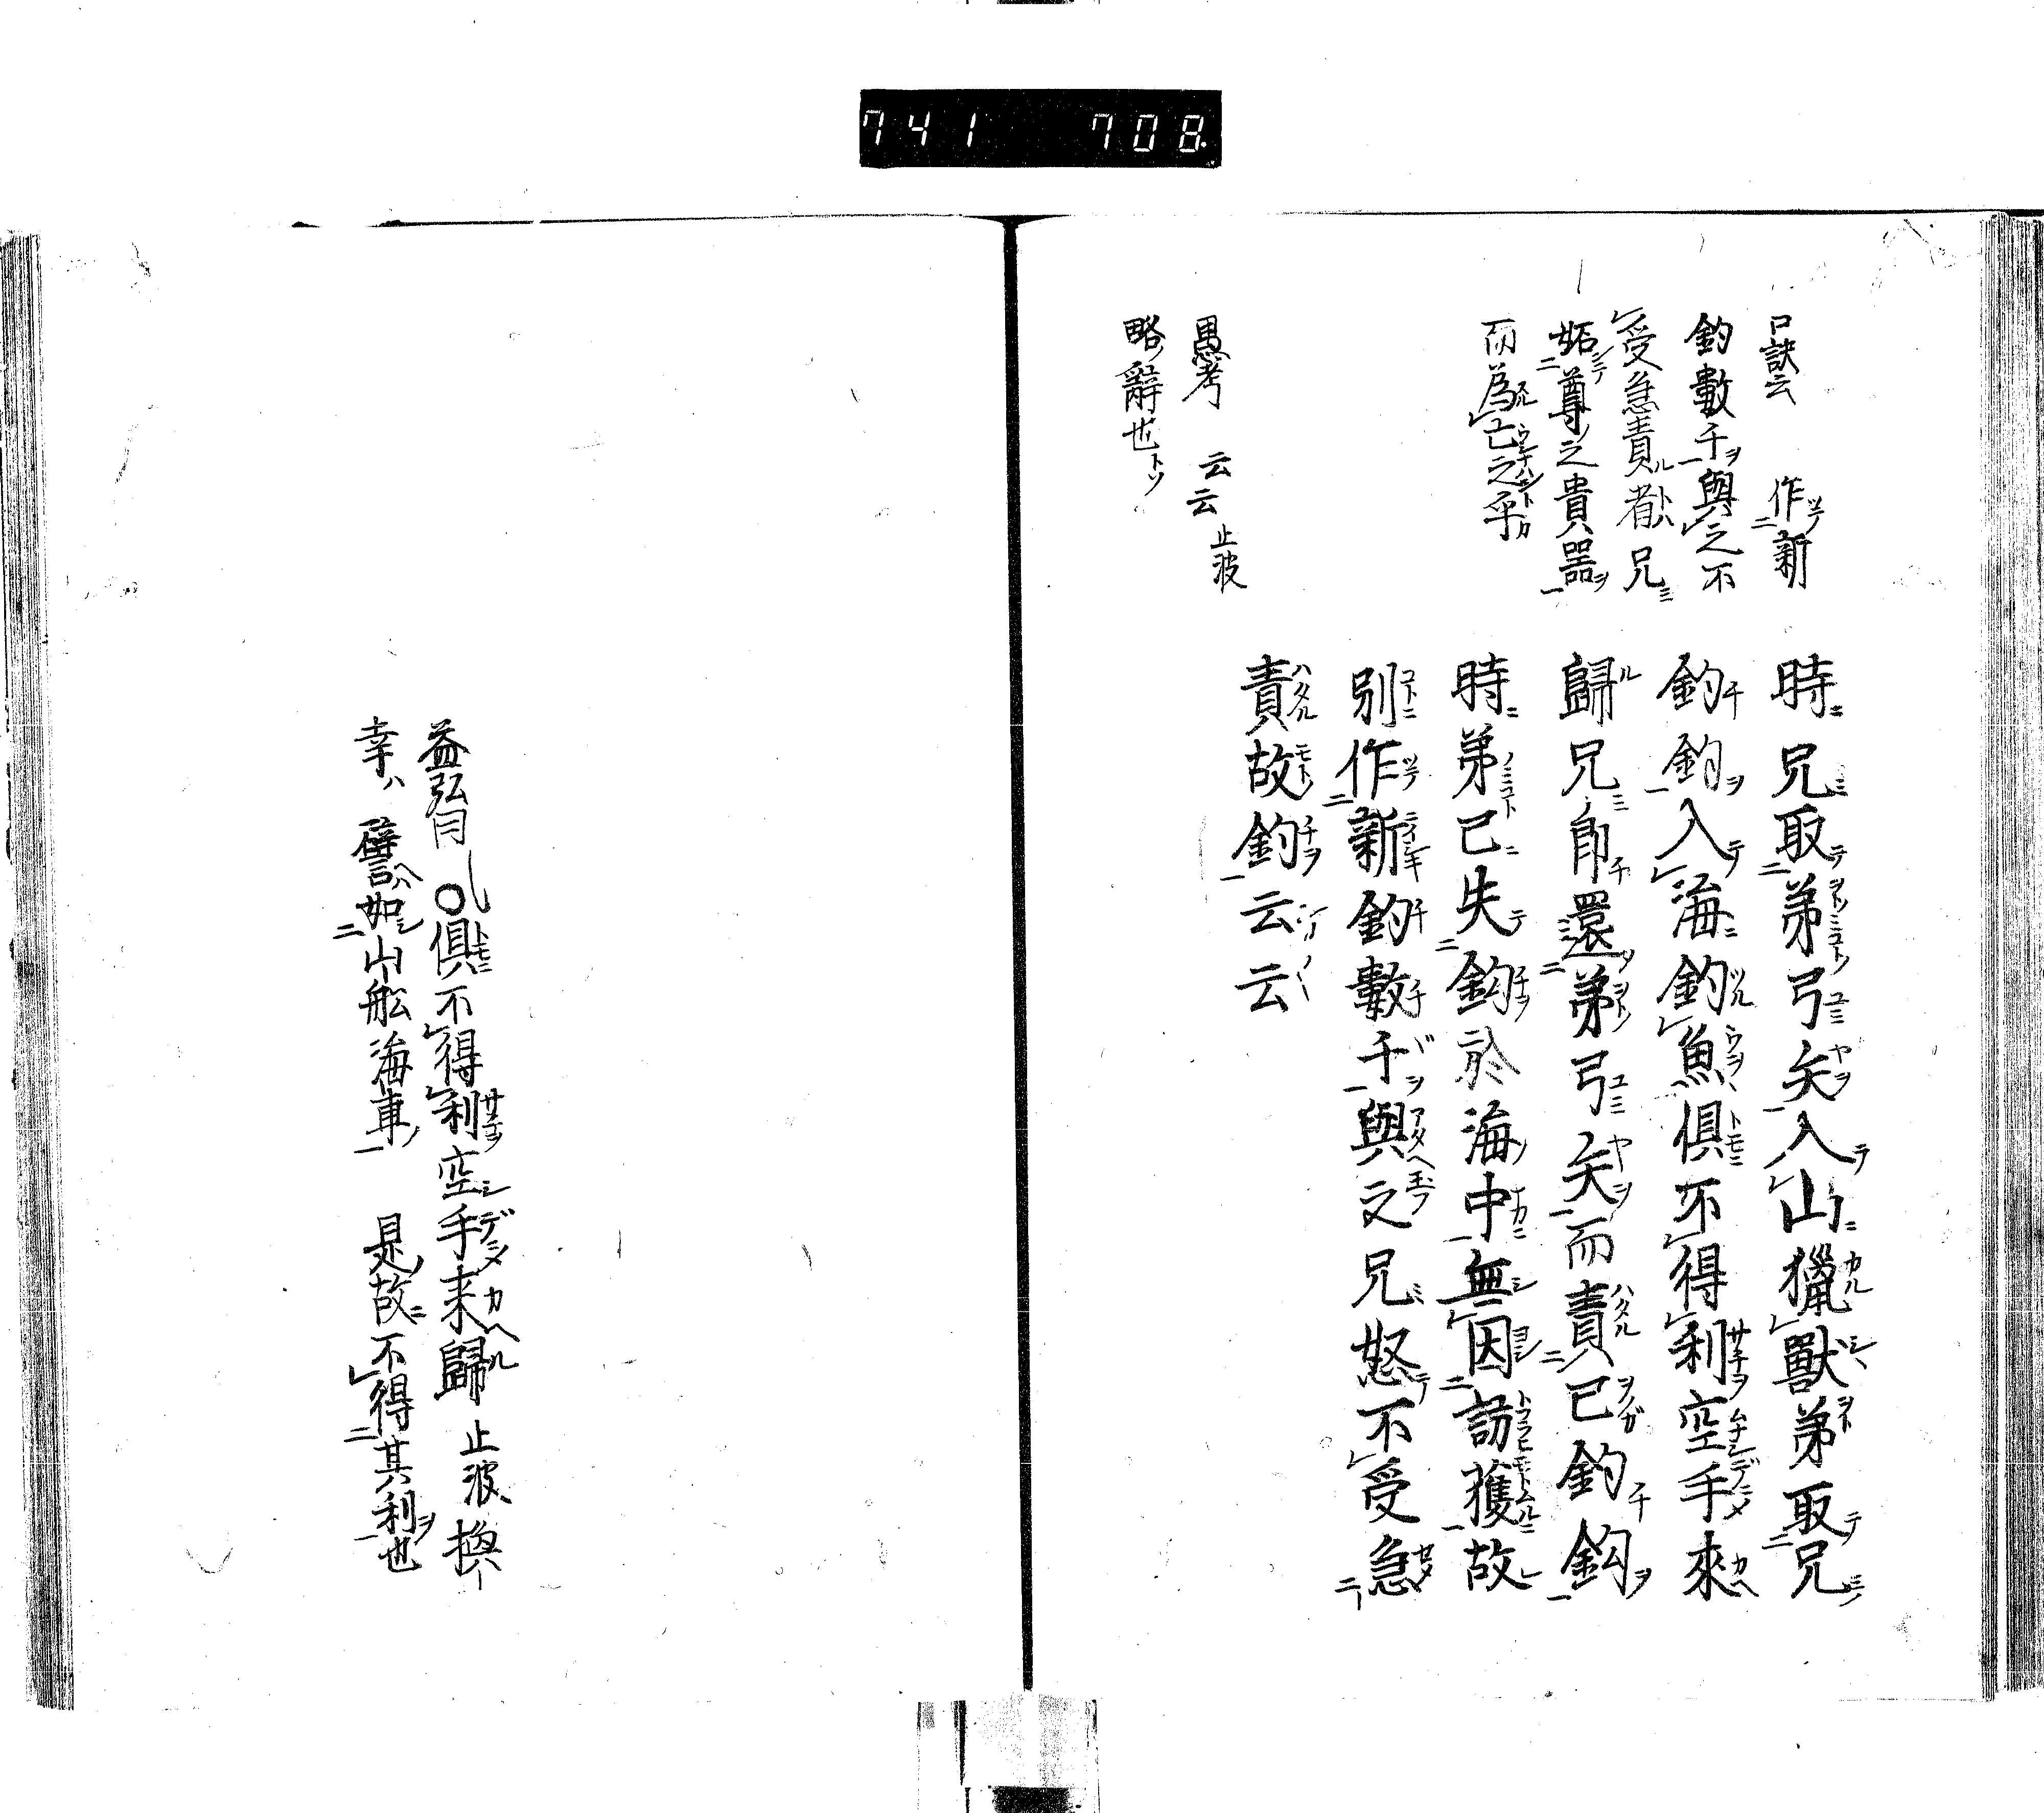 741 708
口訣云 作新
鈎數千與之不
受急責者歟兄
妬尊之貴器
而為亡之乎
愚考 云云止波
略辭也
時兄取弟弓矢入山獵獸弟取兄
釣鈎入海釣魚倶不得利空手來
歸兄即還弟弓矢而責己釣鈎
時弟已失鈎於海中無因訪獲故
別作新鈎數千與之兄怒不受急
責故鈎云云
益弘曰 ○倶不得利空手来歸止波換
幸ハ 譬ヘハ如山舩海車 是故不得其利也